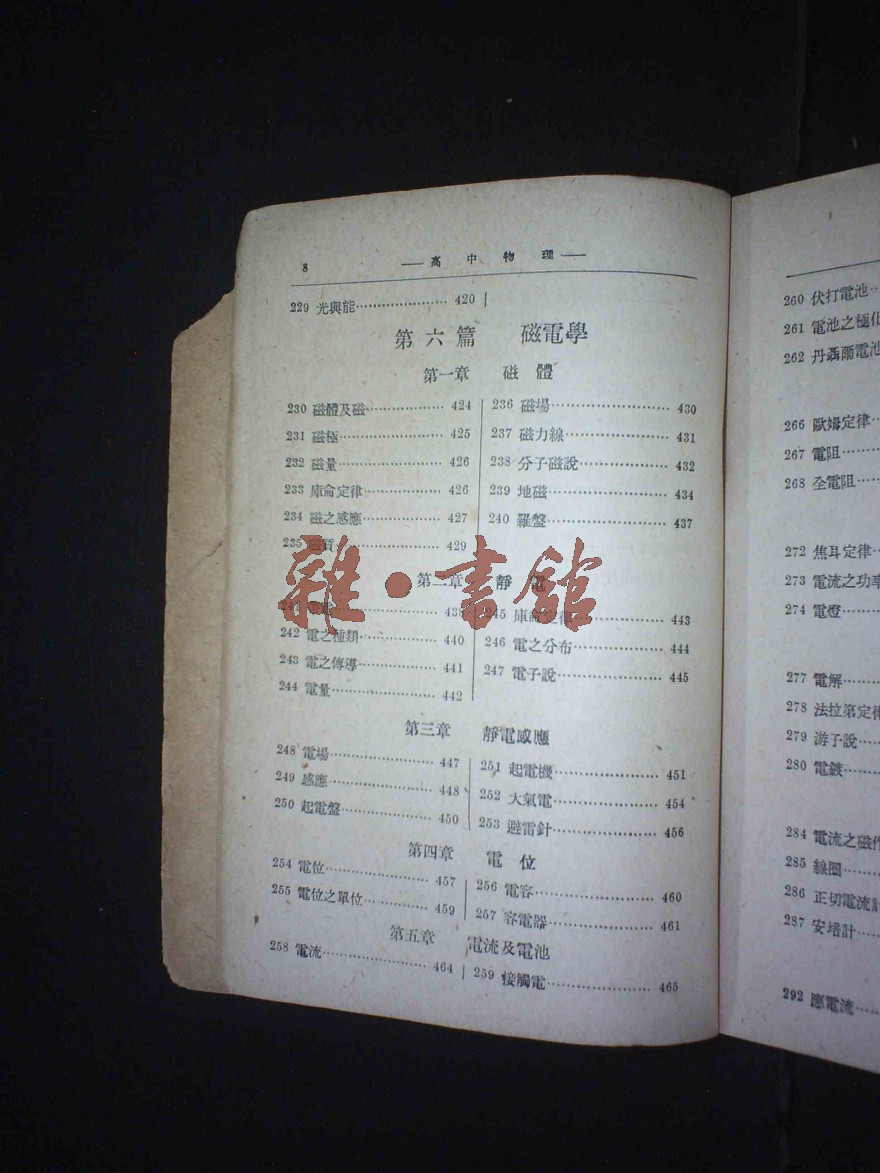 8 —高中物理—
229 光與能 420
第六篇 磁電學
第一章 磁體
230 磁體及磁 424
231 磁極 425
232 磁量 426
233 庫侖定律 426
234 磁之感應 427
235 磁質 429
236 磁場 430
237 磁力線 431
238 分子磁說 432
239 地磁 434
240 羅盤 437
第二章 靜電
241
242 電之種類 440
243 電之傳導 441
244 電量 442
245 庫侖定律 443
246 電之分布 444
247 電子說 445
第三章 靜電感應
248 電場 447
249 感應 448
250 起電盤 450
251 起電機 451
252 大氣電 454
253 避雷針 456
第四章 電位
254 電位 457
255 電位之單位 459
256 電容 460
257 容電器 461
第五章 電流及電池
258 電流 464
259 接觸電 465
雜·書館
260 伏打電池
261 電池之極化
262 丹聶爾電池
266 歐姆定律
267 電阻
268 全電阻
272 焦耳定律
273 電流之功率
274 電燈
277 電解
278 法拉第定律
279 游子說
280 電鍍
284 電流之磁作
285 線圈
286 正切電流計
287 安培計
292 應電流